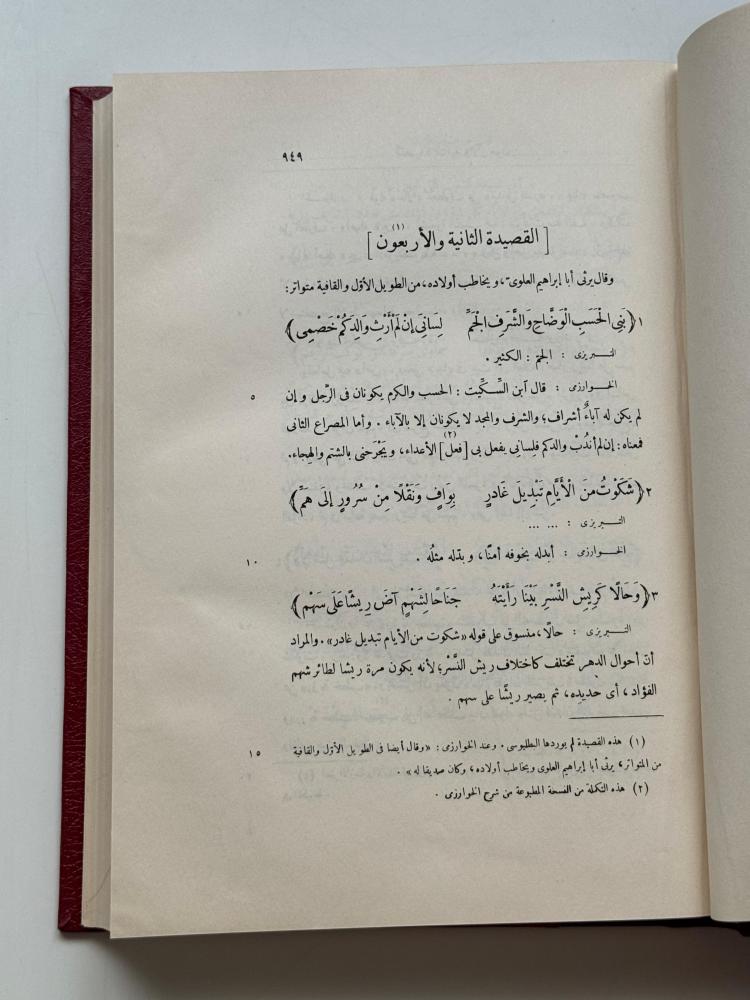 ٩٤٩
[ القصيدة الثانية والأربعون ] (١)
وقال يرثى أبا إبراهيم العلوىّ، ويخاطب أولاده، من الطويل الأوّل والقافية متواتر:
١ ﴿بَنِى الْحَسَبِ الْوَضَّاحِ وَالشَّرَفِ الْجَمِّ لِسَانِى إِنْ لَمْ أَرْثِ وَالِدَكُمْ خَصْمِى﴾
التبريزى : الجمّ : الكثير .
الخوارزمى : قال آبن السِّكِّيت : الحسب والكرم يكونان فى الرّجل و إن ٥
لم يكن له آباءٌ أشراف؛ والشرف والمجد لا يكونان إلا بالآباء . وأما المصراع الثانى
فمعناه : إن لم أندُبْ والدكم فلسانى يفعل بى [ فعلَ ] (٢) الأعداء، ويَجْرَحنى بالشتم والهجاء.
٢ ﴿شَكَوْتُ مِنَ الْأَيَّامِ تَبْدِيلَ غَادِرٍ بِوَافٍ وَنَقْلًا مِنْ سُرُورٍ إِلَى هَمِّ﴾
التبريزى : ... ...
الخوارزمى : أبدله بخوفه أمنًا، و بدّله مثلُه . ١٠
٣ ﴿وَحَالًا كَرِيشِ النَّسْرِ بَيْنَا رَأَيْتَهُ جَنَاحًا لِشَهْمٍ آضَ رِيشًا عَلَى سَهْمِ﴾
التبريزى : حالًا، منسوق على قوله «شكوت من الأيام تبديل غادر» . والمراد
أنّ أحوال الدهر تختلف كاختلاف ريش النَّسْر؛ لأنه يكون مرة ريشا لطائر شهم
الفؤاد ، أى حديده، ثم يصير ريشًا على سهم .
(١) هذه القصيدة لم يوردها البطليوسى . وعند الخوارزمى : «وقال أيضا فى الطويل الأوّل والقافية ١٥
من المتواتر، يرثى أبا إبراهيم العلوى ويخاطب أولاده ، وكان صديقا له» .
(٢) هذه التكملة من النسخة المطبوعة من شرح الخوارزمى .